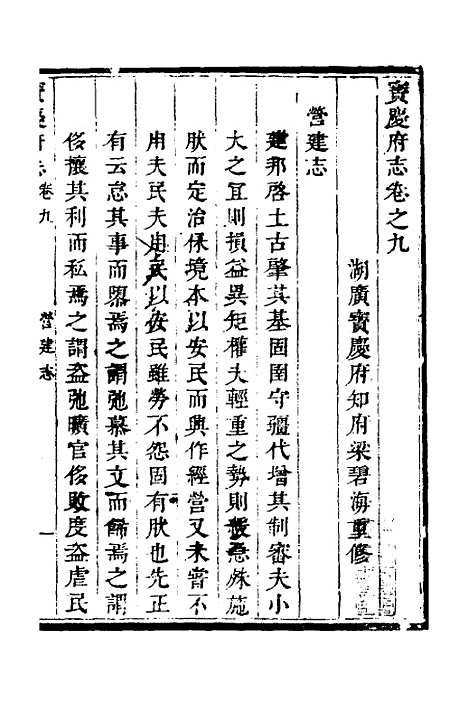 寳慶府志卷之九
湖廣寳慶府知府梁碧海重修
營建志
建邦啓土古肇其基固圉守疆代增其制審夫小
大之宜則損益異矩權夫輕重之勢則緩急殊施
肰而定治保境本以安民而興作經營又未嘗不
用夫民夫用民以安民雖勞不怨固有肰也先正
有云怠其事而畧焉之謂弛慕其文而餙焉之謂
侈攘其利而私焉之謂盗弛曠官侈敗度盗虐民
寳慶府志 卷九 營建志 一